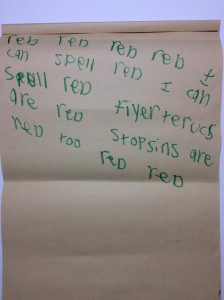 red red red red I
can spell red I can
spell red
are red fiyertrucs
red too stopsins are
red red